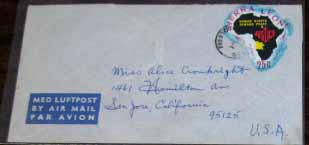 SIERRA LEONE
HUMAN RIGHTS
JUSTICE
Miss Alice
1461 Hamilton Ave
San Jose, California
95125
U.S.A.
MED LUFTPOST
BY AIR MAIL
PAR AVION